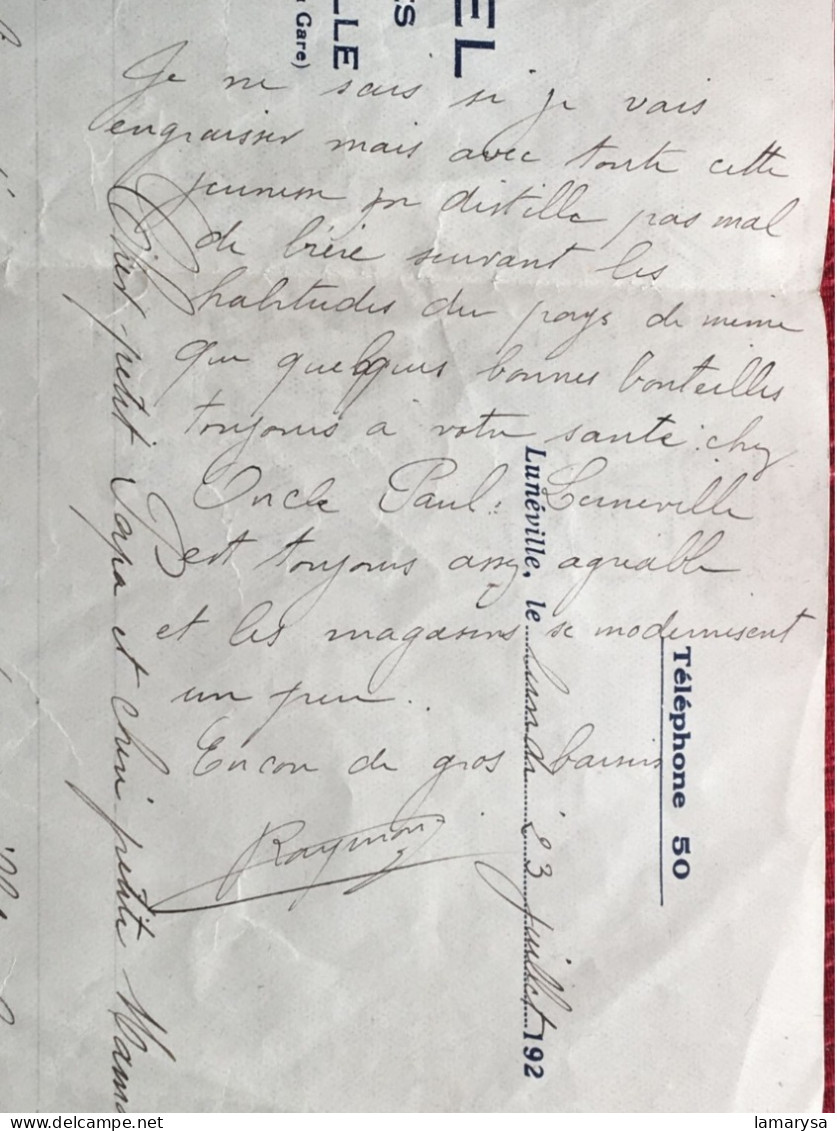 EL
ES
LLE
Gare)
Téléphone 50
Lunéville, le lundi 23 juillet 192
Cher petit Papa et chère petite Mama
Je ne sais si je vais
engraisser mais avec toute cette
jeunesse on distille pas mal
de bière suivant les
habitudes du pays de même
que quelques bonnes bouteilles
toujours à votre santé chez
Oncle Paul. Luneville
est toujours assez agréable
et les magasins se modernisent
un peu..
Encore de gros baisers
Raymond
delcampe.net
lamarysa